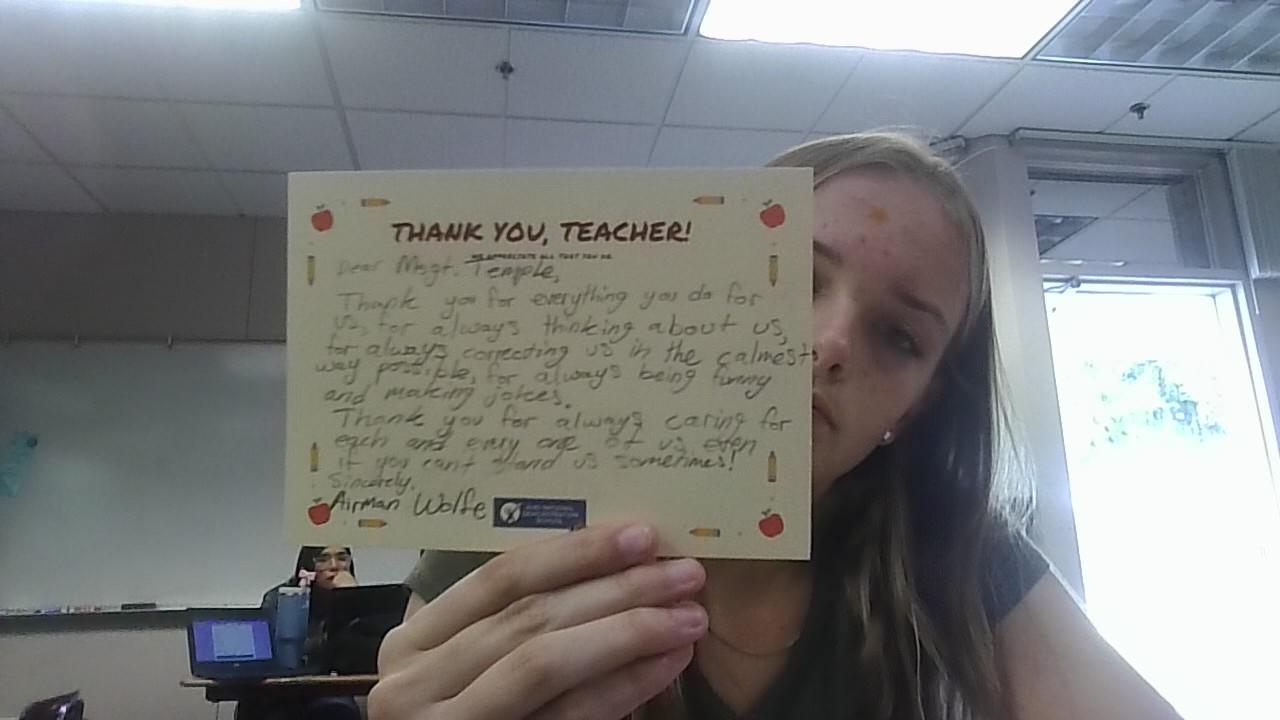 THANK YOU, TEACHER!
WE APPRECIATE ALL THAT YOU DO.
Dear Msgt. Temple,
Thank you for everything you do for
us, for always thinking about us,
for always correcting us in the calmest
way possible, for always being funny
and making jokes.
Thank you for always caring for
each and every one of us even
if you can't stand us sometimes!
Sincerely,
Airman Wolfe
AVID NATIONAL
DEMONSTRATION
SCHOOL